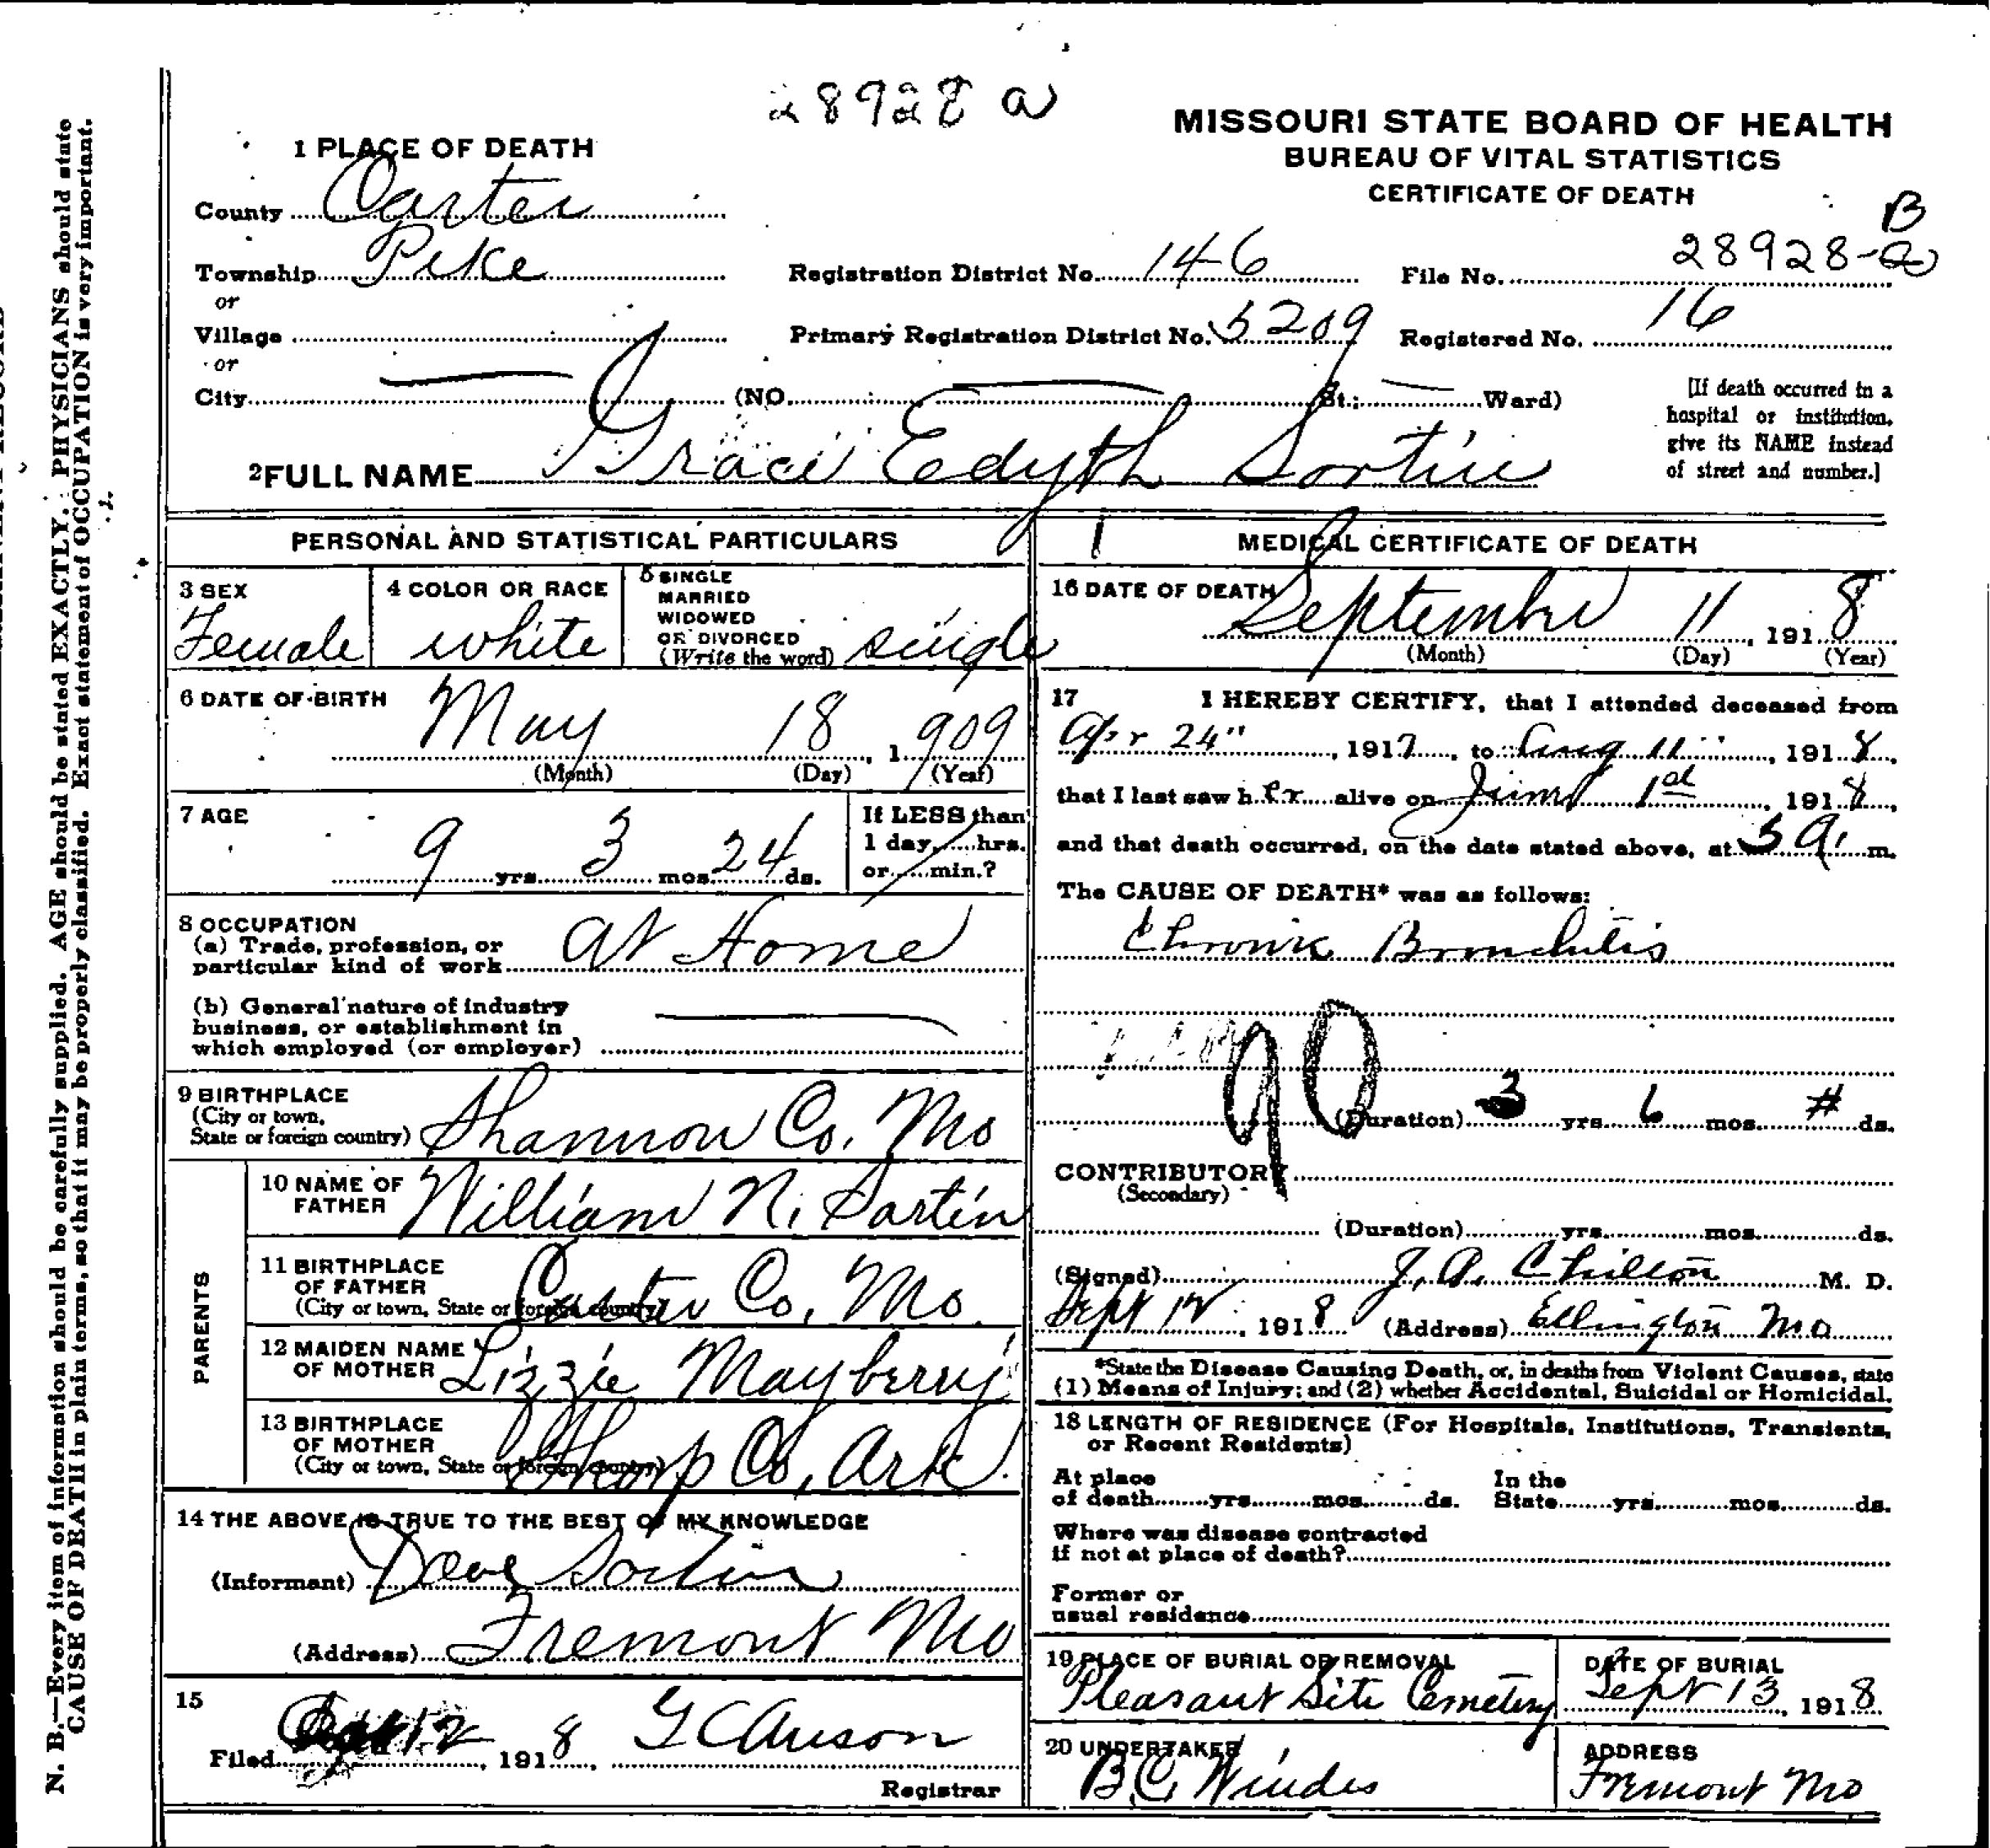 28928 a
MISSOURI STATE BOARD OF HEALTH
BUREAU OF VITAL STATISTICS
CERTIFICATE OF DEATH
1 PLACE OF DEATH
County Carter
Township Pike
or
Village
or
City
Registration District No. 146
Primary Registration District No. 5209
B
File No. 28928-a
Registered No. 16
(NO. St.; Ward)
[If death occurred in a
hospital or institution,
give its NAME instead
of street and number.]
2 FULL NAME Grace Edyth Sartin
PERSONAL AND STATISTICAL PARTICULARS
3 SEX
Female
4 COLOR OR RACE
white
5 SINGLE
MARRIED
WIDOWED
OR DIVORCED
(Write the word) single
6 DATE OF BIRTH
May 18, 1909
(Month) (Day) (Year)
7 AGE
9 yrs. 3 mos. 24 ds.
If LESS than
1 day, hrs.
or min.?
8 OCCUPATION
(a) Trade, profession, or
particular kind of work at Home
(b) General nature of industry
business, or establishment in
which employed (or employer)
9 BIRTHPLACE
(City or town,
State or foreign country) Shannon Co, Mo
PARENTS
10 NAME OF
FATHER William N. Sartin
11 BIRTHPLACE
OF FATHER
(City or town, State or foreign country) Carter Co, Mo.
12 MAIDEN NAME
OF MOTHER Lizzie Mayberry
13 BIRTHPLACE
OF MOTHER
(City or town, State or foreign country) Sharp Co, Ark.
14 THE ABOVE IS TRUE TO THE BEST OF MY KNOWLEDGE
(Informant) Dave Sartin
(Address) Fremont Mo
15
Filed 12, 1918, Registrar
MEDICAL CERTIFICATE OF DEATH
16 DATE OF DEATH
September 11, 1918
(Month) (Day) (Year)
17 I HEREBY CERTIFY, that I attended deceased from
Apr 24", 1917, to Aug 11", 1918,
that I last saw her alive on June 1st, 1918,
and that death occurred, on the date stated above, at 5 a. m.
The CAUSE OF DEATH* was as follows:
Chronic Bronchitis
90
(Duration) 3 yrs. 6 mos. # ds.
CONTRIBUTORY
(Secondary)
(Duration) yrs. mos. ds.
(Signed) J. A. Chilton M. D.
Sept 12, 1918 (Address) Ellington Mo
*State the Disease Causing Death, or, in deaths from Violent Causes, state
(1) Means of Injury; and (2) whether Accidental, Suicidal or Homicidal.
18 LENGTH OF RESIDENCE (For Hospitals, Institutions, Transients,
or Recent Residents)
At place
of death yrs. mos. ds.
In the
State yrs. mos. ds.
Where was disease contracted
if not at place of death?
Former or
usual residence
19 PLACE OF BURIAL OR REMOVAL
Pleasant Site Cemetery
DATE OF BURIAL
Sept 13, 1918
20 UNDERTAKER
B.C. Windes
ADDRESS
Fremont Mo
N. B.—Every item of information should be carefully supplied. AGE should be stated EXACTLY. PHYSICIANS should state
CAUSE OF DEATH in plain terms, so that it may be properly classified. Exact statement of OCCUPATION is very important.